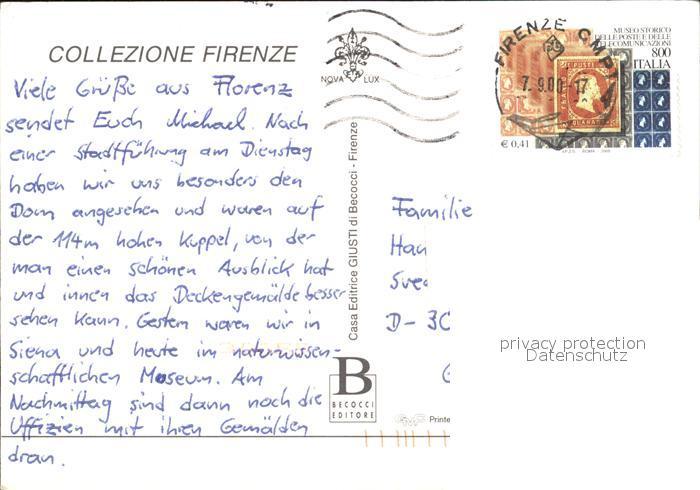 COLLEZIONE FIRENZE
Viele Grüße aus Florenz
sendet Euch Michael. Nach
einer Stadtführung am Dienstag
haben wir uns besonders den
Dom angesehen und waren auf
der 114m hohen Kuppel, von der
man einen schönen Ausblick hat
und innen das Deckengemälde besser
sehen kann. Gestern waren wir in
Siena und heute im naturwissen-
schaftlichen Museum. Am
Nachmittag sind dann noch die
Uffizien mit ihren Gemälden
dran.
NOVA LUX
Casa Editrice GIUSTI di Becocci - Firenze
B
BECOCCI
EDITORE
Printe
FIRENZE CMP
7.9.00-17
MUSEO STORICO
DELLE POSTE E DELLE
TELECOMUNICAZIONI
800
ITALIA
€ 0,41
Familie
Han
Sve
D-30
privacy protection
Datenschutz